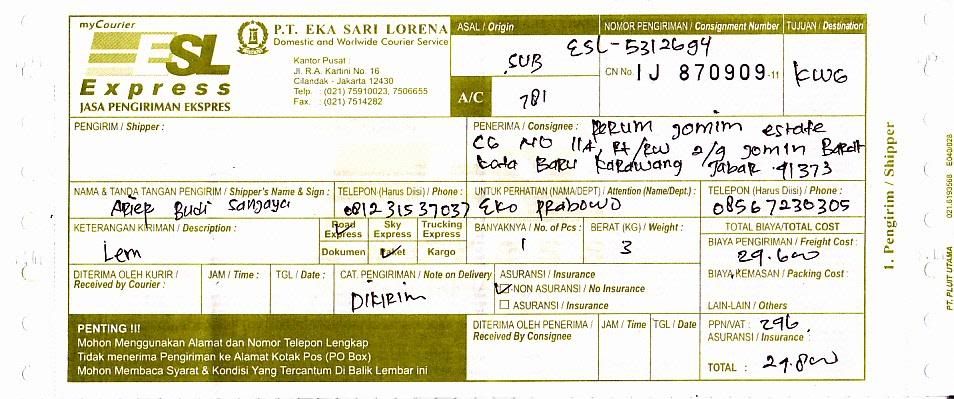 myCourier
ESL
Express
JASA PENGIRIMAN EKSPRES
P.T. EKA SARI LORENA
Domestic and Worlwide Courier Service
Kantor Pusat :
Jl. R.A. Kartini No. 16
Cilandak - Jakarta 12430
Telp. : (021) 75910023, 7506655
Fax. : (021) 7514282
ASAL / Origin
SUB
A/C
781
NOMOR PENGIRIMAN / Consignment Number
ESL-5312694
CN No. IJ 870909-11
TUJUAN / Destination
KWG
PENGIRIM / Shipper :
PENERIMA / Consignee : perum jomim estate
CG NO 11A, Rt/RW 2/9 jomin Barat
kota Baru Karawang Jabar 41373
NAMA & TANDA TANGAN PENGIRIM / Shipper's Name & Sign :
Arief Budi Sanjaya
TELEPON (Harus Diisi) / Phone :
081231537037
UNTUK PERHATIAN (NAMA/DEPT) / Attention (Name/Dept.) :
Eko prabowo
TELEPON (Harus Diisi) / Phone :
08567230305
KETERANGAN KIRIMAN / Description :
Lem
Road Express
Sky Express
Trucking Express
Dokumen
Paket
Kargo
BANYAKNYA / No. of Pcs :
1
BERAT (KG) / Weight :
3
TOTAL BIAYA/TOTAL COST
BIAYA PENGIRIMAN / Freight Cost :
29.600
BIAYA KEMASAN / Packing Cost :
LAIN-LAIN / Others
PPN/VAT : 296
ASURANSI / Insurance :
TOTAL : 29.800
DITERIMA OLEH KURIR /
Received by Courier :
JAM / Time :
TGL / Date :
CAT. PENGIRIMAN / Note on Delivery
DIKIRIM
ASURANSI / Insurance
NON ASURANSI / No Insurance
ASURANSI / Insurance
DITERIMA OLEH PENERIMA /
Received By Consignee
JAM / Time
TGL / Date
PENTING !!!
Mohon Menggunakan Alamat dan Nomor Telepon Lengkap
Tidak menerima Pengiriman ke Alamat Kotak Pos (PO Box)
Mohon Membaca Syarat & Kondisi Yang Tercantum Di Balik Lembar ini
1. Pengirim / Shipper
PT. PLUIT UTAMA 021.6193568 E040/028